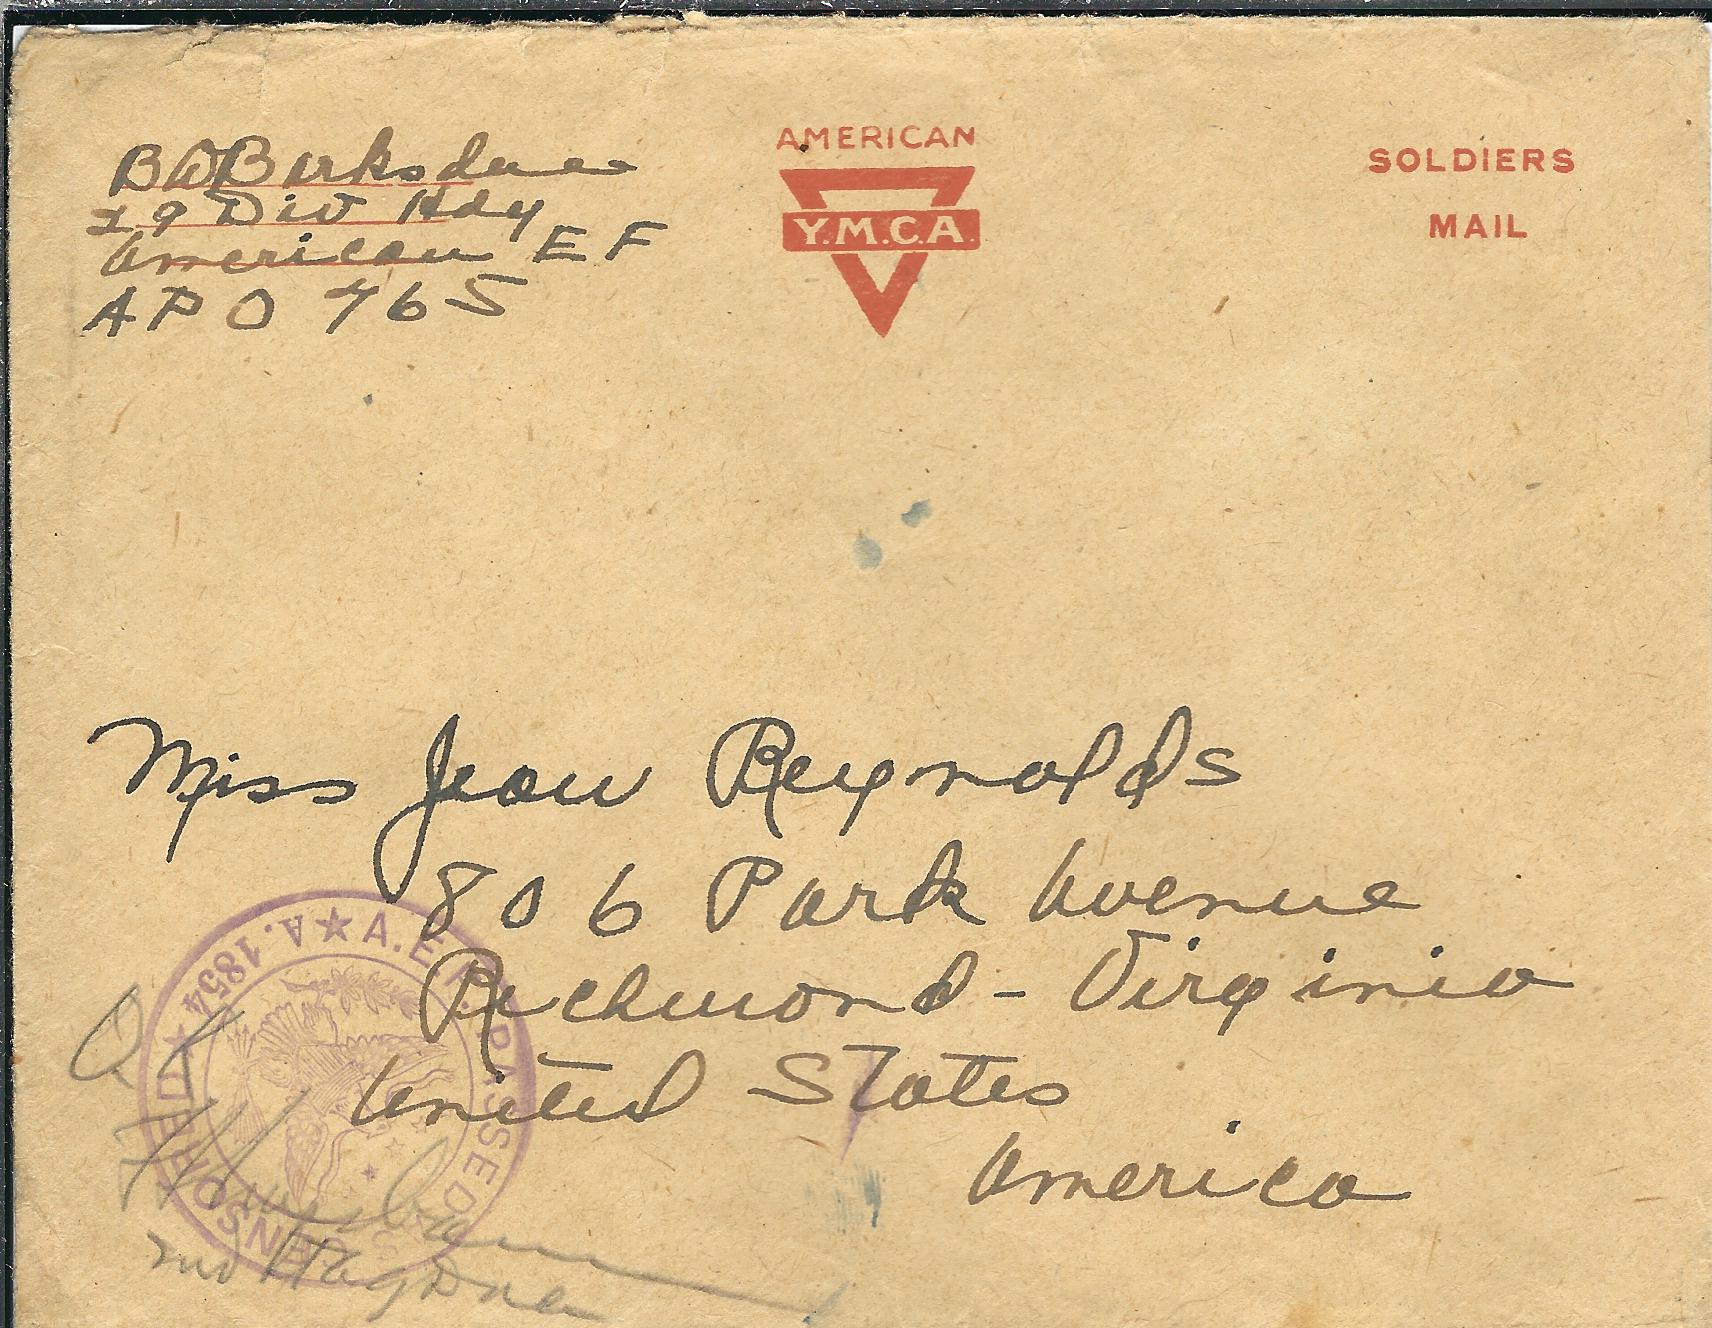 AMERICAN
Y.M.C.A.
SOLDIERS
MAIL
B W Barksdale
29 Div Hdq
American E F
A P O 765
Miss Jean Reynolds
806 Park Avenue
Richmond - Virginia
United States
America
A.E.F. PASSED ★ CENSORED ★ A. 1854 ★
OK